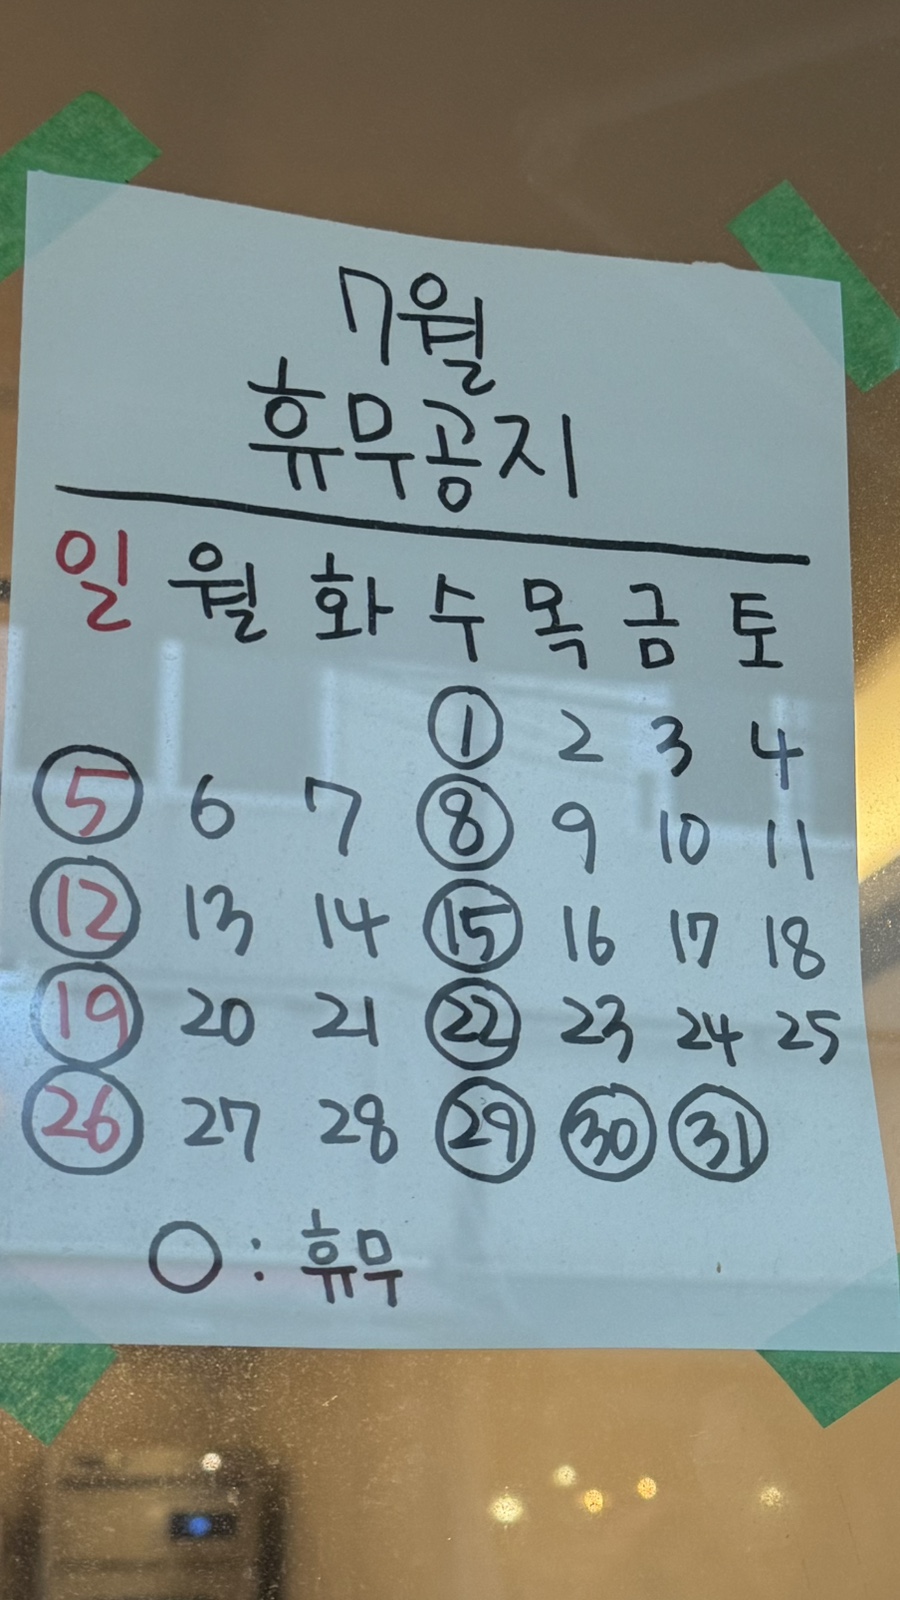 7월
휴무공지
일 월 화 수 목 금 토
1 2 3 4
5 6 7 8 9 10 11
12 13 14 15 16 17 18
19 20 21 22 23 24 25
26 27 28 29 30 31
○ : 휴무